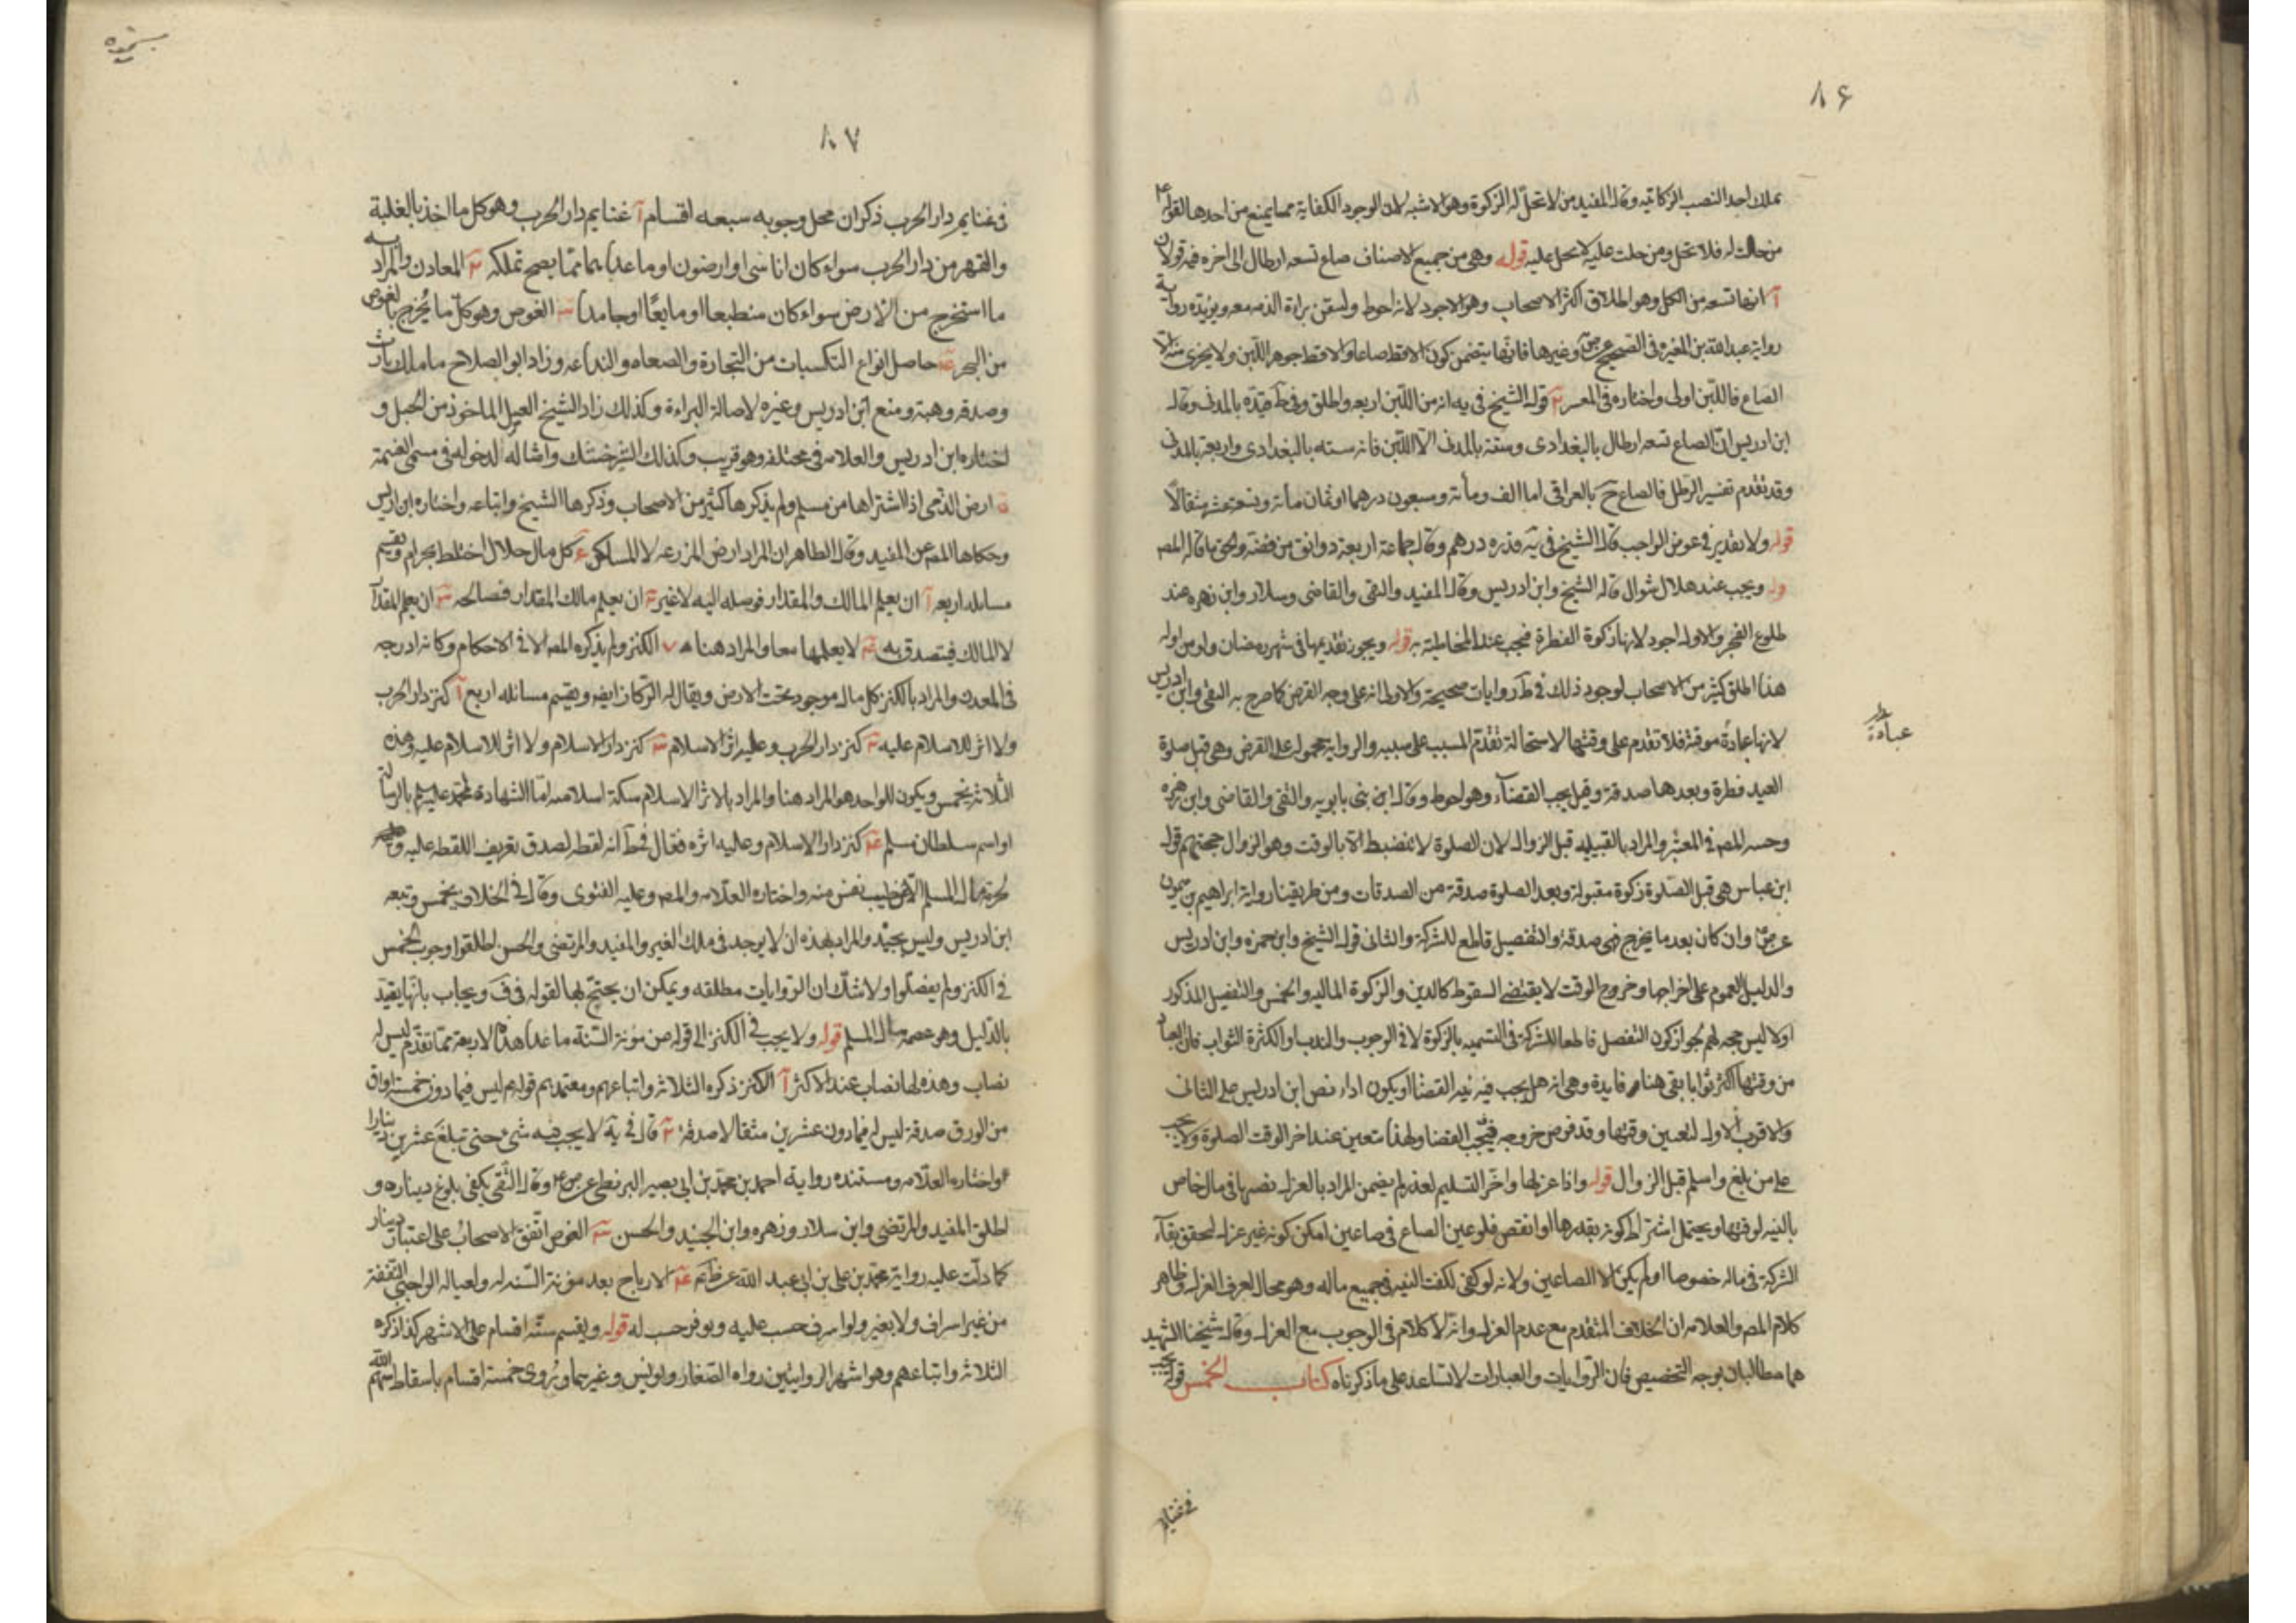 ٨۶
يملك احد النصب الزكاتيه وقال المفيد من لا تحل له الزكوة وهو الاشبه لان الوجود الكفاية مما يمنع من احدها لقوله ع
من حلت له فلا تحل ومن حلت عليه لا تحل عليه قوله وهى من جميع الاصناف صاع تسعه ارطال الى اخره فيه قولان
آ انها تسعه من الكل وهو اطلاق اكثر الاصحاب وهو الاجود لانه احوط وليتقن براة الذمه معه ويؤيده رواية
رواية عبد الله بن المغيره فى الصحيح عن ص وغيرها فانها يتضمن كون الاقط صاعا والاقط جوهر اللبن ولا يجزى منه الا
الصاع فاللبن اولى واختاره فى المعتبر ب قول الشيخ فى يه انه من اللبن اربعه واطلق وفى ط قيده بالمدنى وقال
ابن ادريس ان الصاع تسعه ارطال بالبغدادى وستة بالمدنى الا اللبن فانه سته بالبغدادى واربعة بالمدنى
وقد تقدم تفسير الرطل فالصاع ح بالعراقى اما الف ومأة وسبعون درهما او ثمان مأة وتسعة عشر مثقالا
قوله ولا تقدير فى عوض الواجب قال الشيخ فى يه قدره درهم وقال جماعة اربعة دوانق من فضة والحق ما قاله المصه
وله ويجب عند هلال شوال قاله الشيخ وابن ادريس وقال المفيد والتقى والقاضى وسلار وابن زهره عند
طلوع الفجر والاول اجود لانها زكوة الفطرة فتجب عند المخاطبة به قوله ويجوز تقديمها فى شهر رمضان ولو من اوله
هذا اطلق كثير من الاصحاب لوجود ذلك فى ط روايات صحيحة والاولى انه على وجه القرض كما صرح به التقى وابن ادريس
لانها عبادة موقتة فلا تقدم على وقتها لاستحالة تقدم المسبب على سببه والرواية محمولة على القرض وهى قبل صلوة
عبادة ظ
العيد فطرة وبعدها صدقة وقيل يجب القضاء وهو احوط وقال ابنى بابويه والتقى والقاضى وابن زهره
وحسنه المصه فى المعتبر والمراد بالقبيليه قبل الزوال لان الصلوة لا تنضبط الا بالوقت وهو الزوال حجتهم قول
ابن عباس هى قبل الصلوة زكوة مقبولة وبعد الصلوة صدقة من الصدقات ومن طريقنا رواية ابراهيم بن ميمون
عن ص ع وان كان بعد ما يخرج فهى صدقة والتفصيل قاطع للشركة والثانى قول الشيخ وابن حمزه وابن ادريس
والدليل العموم على اخراجها وخروج الوقت لا يقتضى السقوط كالدين والزكوة الماليه والخمس والتفصيل المذكور
اولا ليس حجه لهم لجواز كون التفصل قاطعا للشركة فى التسميه بالزكوة لا فى الوجوب والندب او الكثرة الثواب فان العبادة
من وقتها اكثر ثوابا بقى هنا فايدة وهى انه هل يجب فيه نيه القضا او يكون اداء نص ابن ادريس على الثانى
والاقرب الاول لتعين وقتها وقد فرض خروجه فيجب القضا ولهذا تتعين عند اخر الوقت الصلوة ولا يجب
على من بلغ واسلم قبل الزوال قوله واذا عزلها واخر التسليم لعذر لم يضمن المراد بالعزل تصيرها فى مال خاص
بالنيه لوقتها ويحتمل اشتراط كونه بقدرها او انقص فلو عين الصاع فى صاعين امكن كونه غير عزل لتحقق بقاء
الشركة فى ماله خصوصا اولم يكن الا الصاعين ولانه لو كفى لكفت النيه فى جميع ماله وهو محال لعرف العزل وظاهر
كلام المصه والعلامه ان الخلاف المتقدم مع عدم العزل وانه لا كلام فى الوجوب مع العزل وقال شيخنا الشهيد
هما مطالبان بوجه التخصيص فان الروايات والعبارات لا تساعد على ما ذكرناه كتاب الخمس قوله يجب
فى غنايم
٨٧
فى غنايم دار الحرب ذكر ان محل وجوبه سبعه اقسام آ غنايم دار الحرب وهو كل ما اخذ بالغلبة
والقهر من دار الحرب سواء كان اناسى او ارضون او ما عداهما مما يصح تملكه ب المعادن والمراد به
ما استخرج من الارض سواء كان منطبعا او مايعا او جامدا ج الغوص وهو كل ما يخرج بالغوص
من البحر د حاصل انواع التكسبات من التجارة والصناعه والزراعه وزاد ابو الصلاح ما ملك بارث
وصدقه وهبة ومنع ابن ادريس وغيره لاصالة البراءة وكذلك زاد الشيخ العسل الماخوذ من الجبل و
اختاره ابن ادريس والعلامه فى مختلفه وهو قريب وكذلك الترخشك واشاله لدخوله فى مسمى الغنيمة
ه ارض الذمى اذا اشتراها من مسلم ولم يذكرها كثير من الاصحاب وذكرها الشيخ واتباعه واختاره ابن ادريس
وحكاها المصه عن المفيد وقال الظاهر ان المراد ارض المزرعه لا المساكن و كل مال حلال اختلط بحرام وتقسيم
مسائله اربعه آ ان يعلم المالك والمقدار فوصله اليه لا غير ب ان يعلم مالك المقدار فصالحه ج ان يعلم المقدار
لا المالك فيتصدق به د لا يعلمها معا والمراد هنا ز الكنز ولم يذكره المصه الا فى الاحكام وكانه ادرجه
فى المعدن والمراد بالكنز كل مال موجود تحت الارض ويقال له الركاز ايضه وتقسيم مسائله اربع آ كنز دار الحرب
ولا اثر للاسلام عليه ب كنز دار الحرب وعليه اثر الاسلام ج كنز دار الاسلام ولا اثر للاسلام عليه وهذه
الثلاثه يخمس ويكون للواجد هو المراد هنا والمراد بالاثر الاسلام سكة اسلاميه اما الشهادة لمحمد عليه السلم بالرسالة
او اسم سلطان مسلم د كنز دار الاسلام وعليه اثره فقال فى ط انه لقطه لصدق تعريف اللقطه عليه
لحرمة مال المسلم الا عن طيب نفس منه واختاره العلامه والمصه وعليه الفتوى وقال فى الخلاف يخمس وتبعه
ابن ادريس وليس بجيد والمراد بهذه ان لا يوجد فى ملك الغير والمفيد والمرتضى والحسن اطلقوا وجوب الخمس
فى الكنز ولم يفصلوا ولا شك ان الروايات مطلقه ويمكن ان يحتج لها لقوله فى ف ويجاب بانها يقيد
بالدليل وهو عصمه مال المسلم قوله ولا يجب فى الكنز الى قوله من مؤنة السنة ما عدا هذه الاربعة مما تقدم ليس له
نصاب وهذه لها نصاب عند الاكثر آ الكنز ذكره الثلاثه واتباعهم ومعتمدهم قوله ع ليس فيما دون خمسة اواق
من الورق صدقة ليس له فيما دون عشرين مثقالا صدقة ب قال فى يه لا يجب فيه شىء حتى تبلغ عشرين دينارا
واختاره العلامه ومستنده رواية احمد بن محمد بن ابى بصير البزنطى عن ص ع وقال التقى يكفى بلوغ ديناره و
اطلق المفيد والمرتضى وابن سلار وزهره وابن الجنيد والحسن ج الغوص اتفق الاصحاب على اعتبار دينار
كما دلت عليه رواية محمد بن على بن ابى عبد الله عن ظم د الارباح بعد مؤنة السنه له ولعياله الواجبى النفقة
من غير اسراف ولا بغير ولو اسرف حسب عليه وبوفر حسب له قوله ويقسم ستة اقسام على الاشهر كذا ذكره
الثلاثه واتباعهم وهو اشهر الروايتين رواه الصغار ويونس وغيرهما ويروى خمسة اقسام باسقاط سهم الله